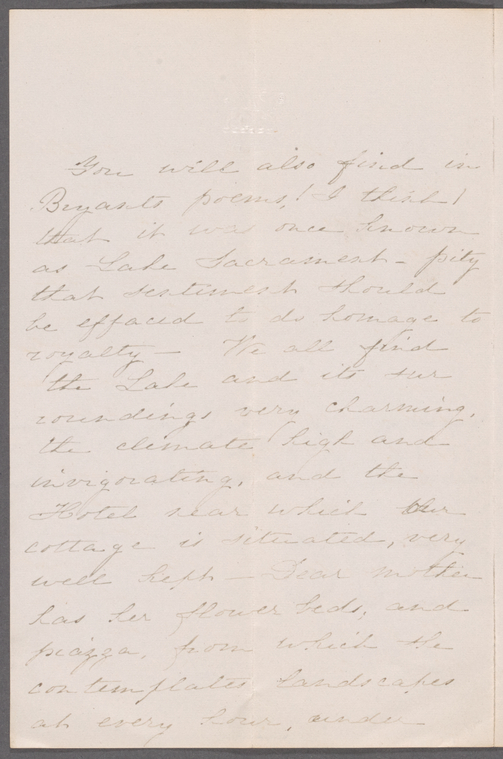 You will also find in
Bryants poems, (I think)
that it was once known
as Lake Sacrament - pity
that sentiment should
be effaced to do homage to
royalty - We all find
the Lake and its sur
roundings very charming,
the climate high and
invigorating, and the
Hotel near which our
cottage is situated, very
well kept - Dear mother
has her flower beds, and
piazza, from which she
contemplates Landscapes
at every hour, under